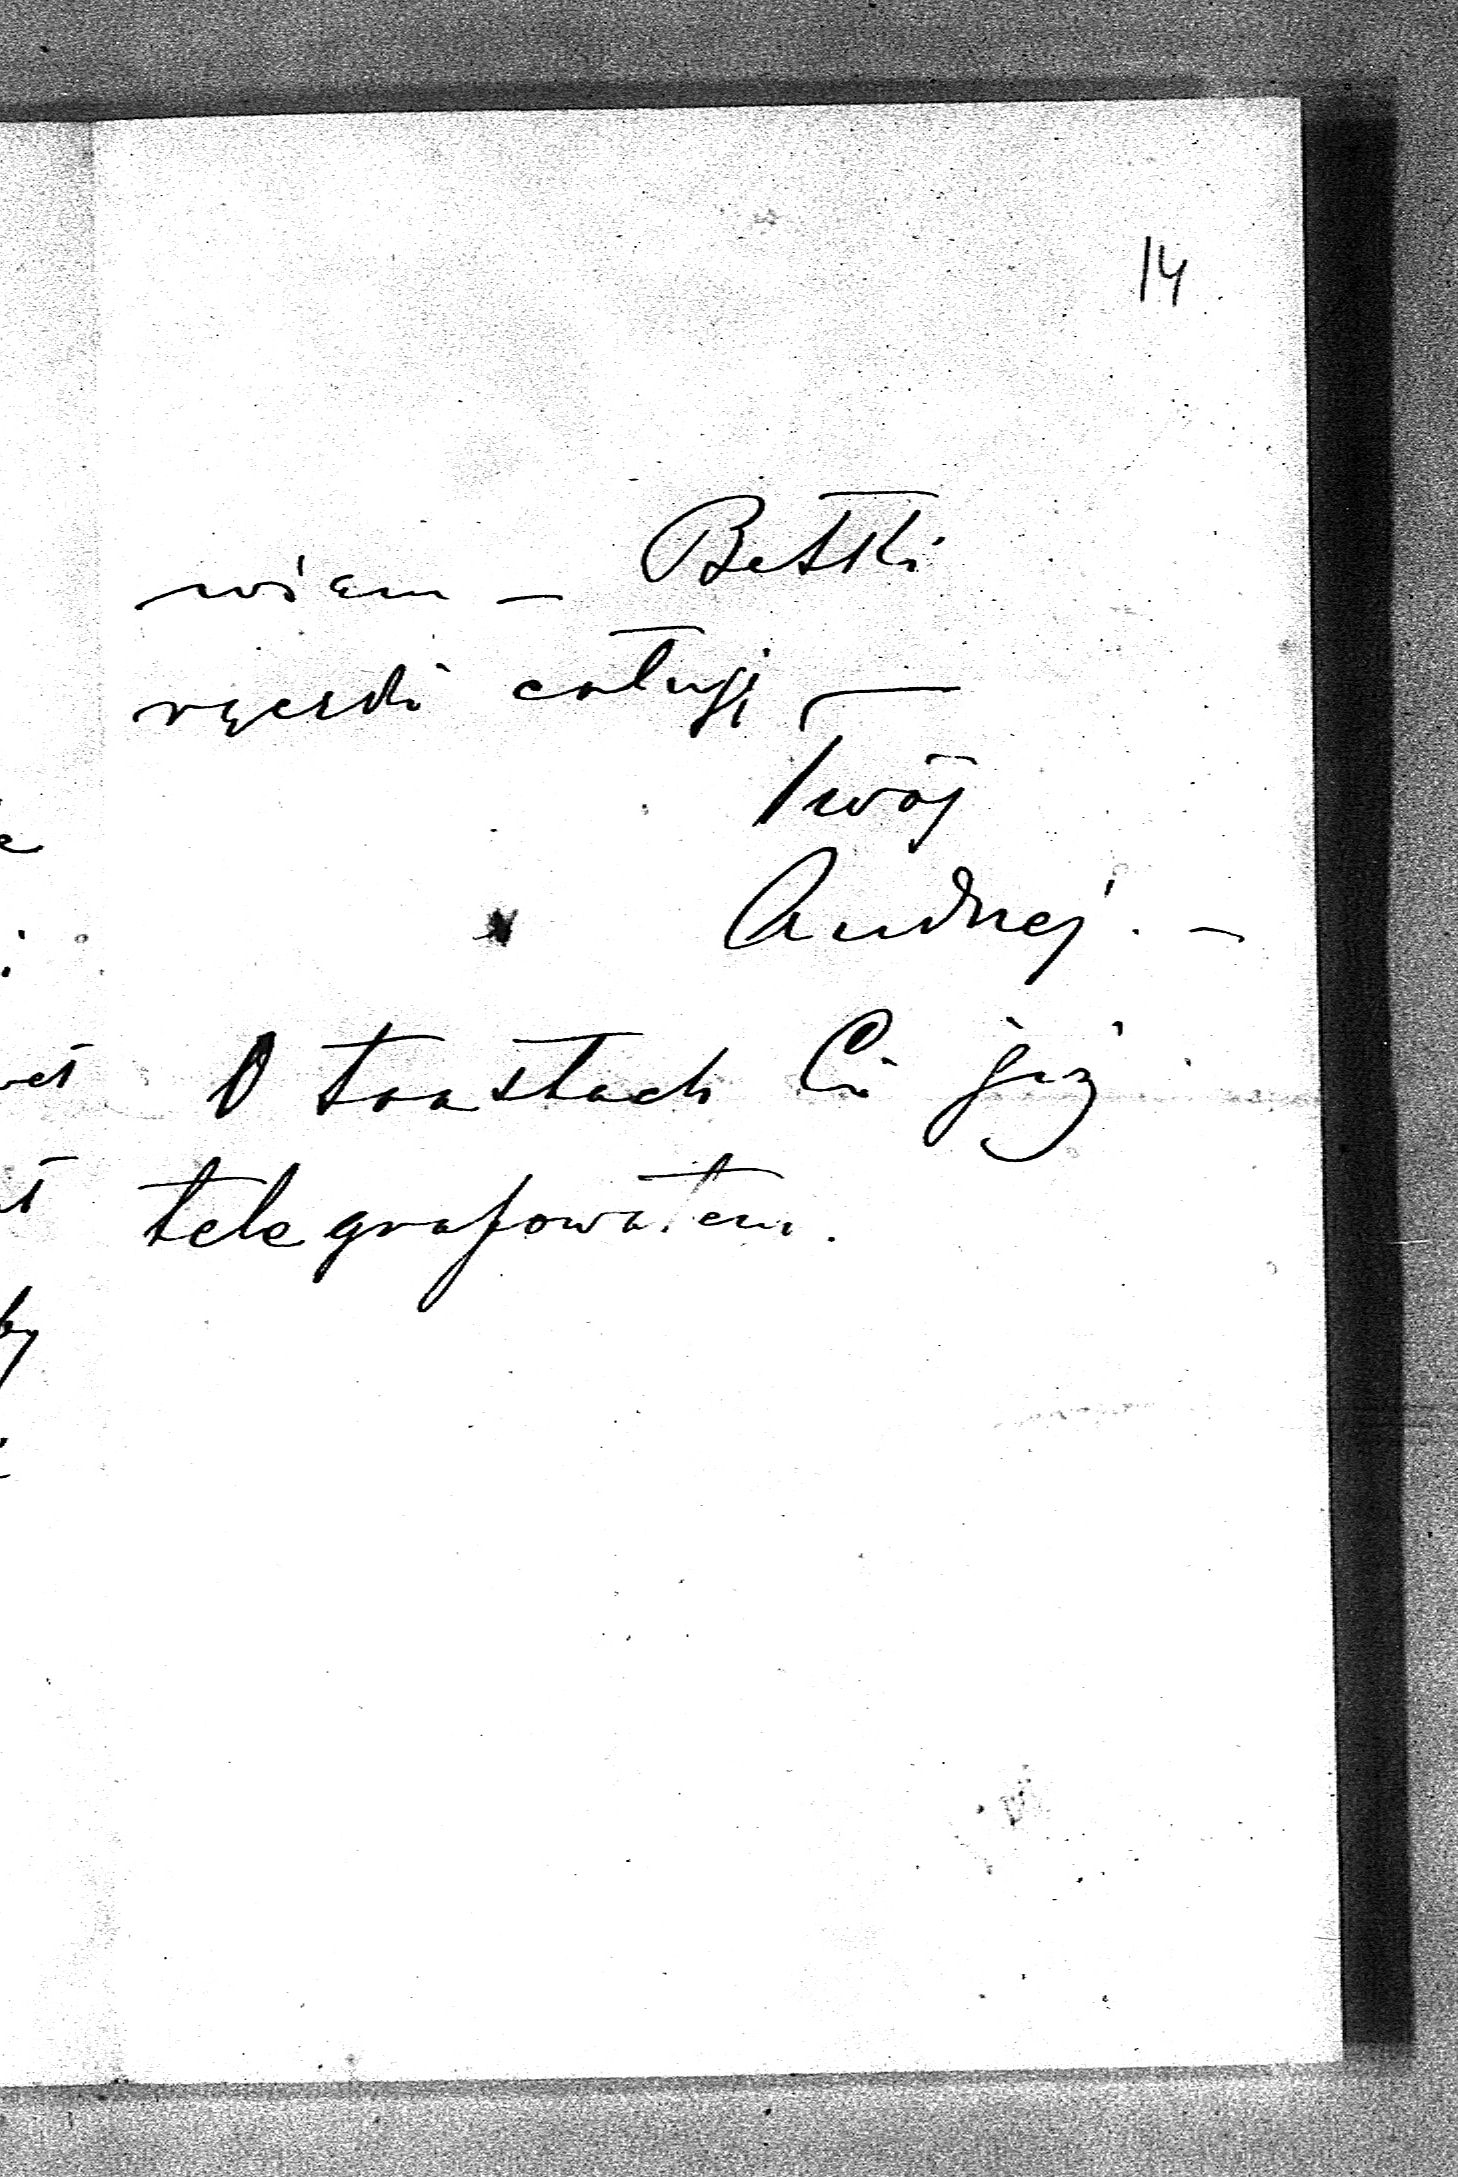 14
wiem – Betki
rączki całuję –
Twój
Andrzej. –
O toastach Ci już
telegrafowałem.